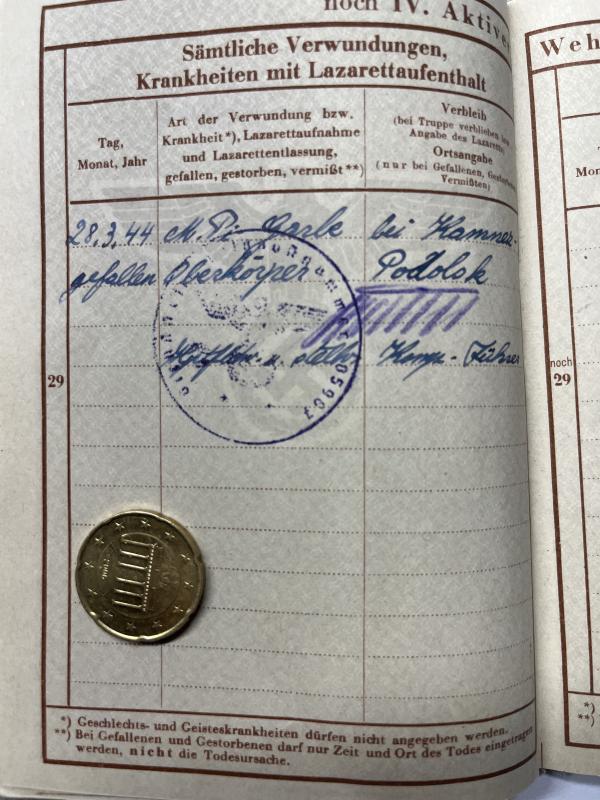 noch IV. Aktive
Sämtliche Verwundungen,
Krankheiten mit Lazarettaufenthalt
Tag,
Monat, Jahr
Art der Verwundung bzw.
Krankheit*), Lazarettaufnahme
und Lazarettentlassung,
gefallen, gestorben, vermißt**)
Verbleib
(bei Truppe verblieben
Angabe des Lazaretts
Ortsangabe
(nur bei Gefallenen,
Vermißten)
28.3.44 M. Pi. Garbe bei Kamnez-
gefallen Oberkörper Podolsk
u. stellv. Komp.-Führer
05907
29
noch
29
2002
*) Geschlechts- und Geisteskrankheiten dürfen nicht angegeben werden.
**) Bei Gefallenen und Gestorbenen darf nur Zeit und Ort des Todes eingetragen
werden, nicht die Todesursache.
Weh
Mon
*)
**)